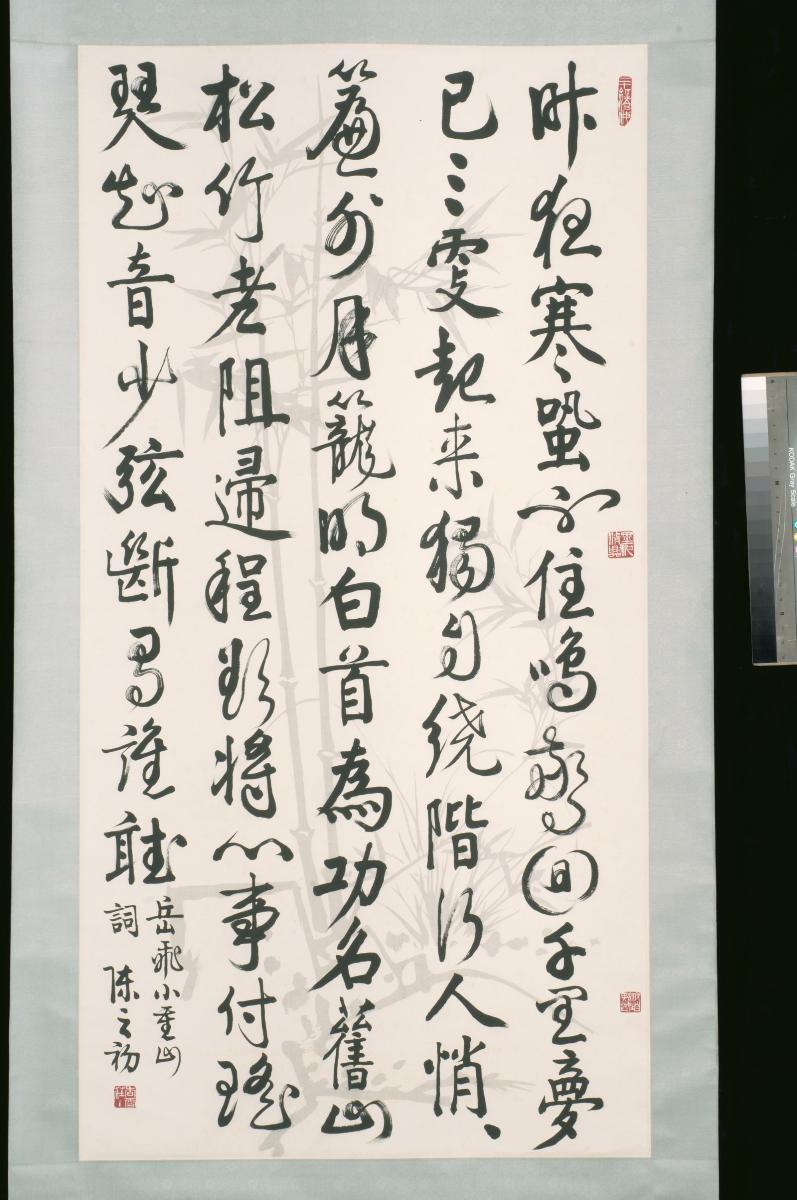 昨夜寒蛩不住鳴驚回千里夢
已三更起来獨自绕階行人悄、
簾外月籠明白首為功名舊山
松竹老阻歸程欲將心事付瑤
琴知音少弦斷有誰聽
岳飛小重山
詞 陳之初
KODAK Gray Scale